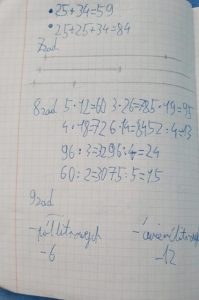 • 25+34=59
• 25+25+34=84
7zad
8zad 5·12=60 3·26=78 5·19=95
4·18=72 6·14=84 52:4=13
96:3=32 96:4=24
60:2=30 75:5=15
9zad
-półlitrowych
-ćwierćlitrowych
-6
-12